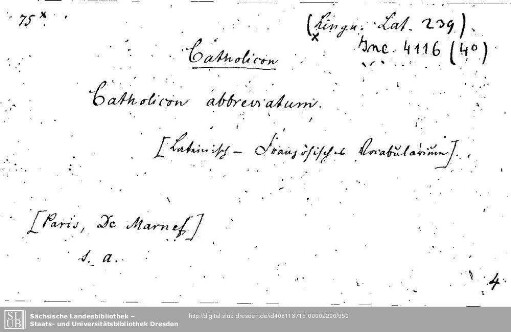 75ˣ
(Lingu. Lat. 239).
x
Inc. 4116 (4°)
Catholicon
Catholicon abbreviatum.
[Lateinisch – Französisches Vocabularium].
[Paris, De Marnef]
s. a.
4
SLUB
Sächsische Landesbibliothek –
Staats- und Universitätsbibliothek Dresden